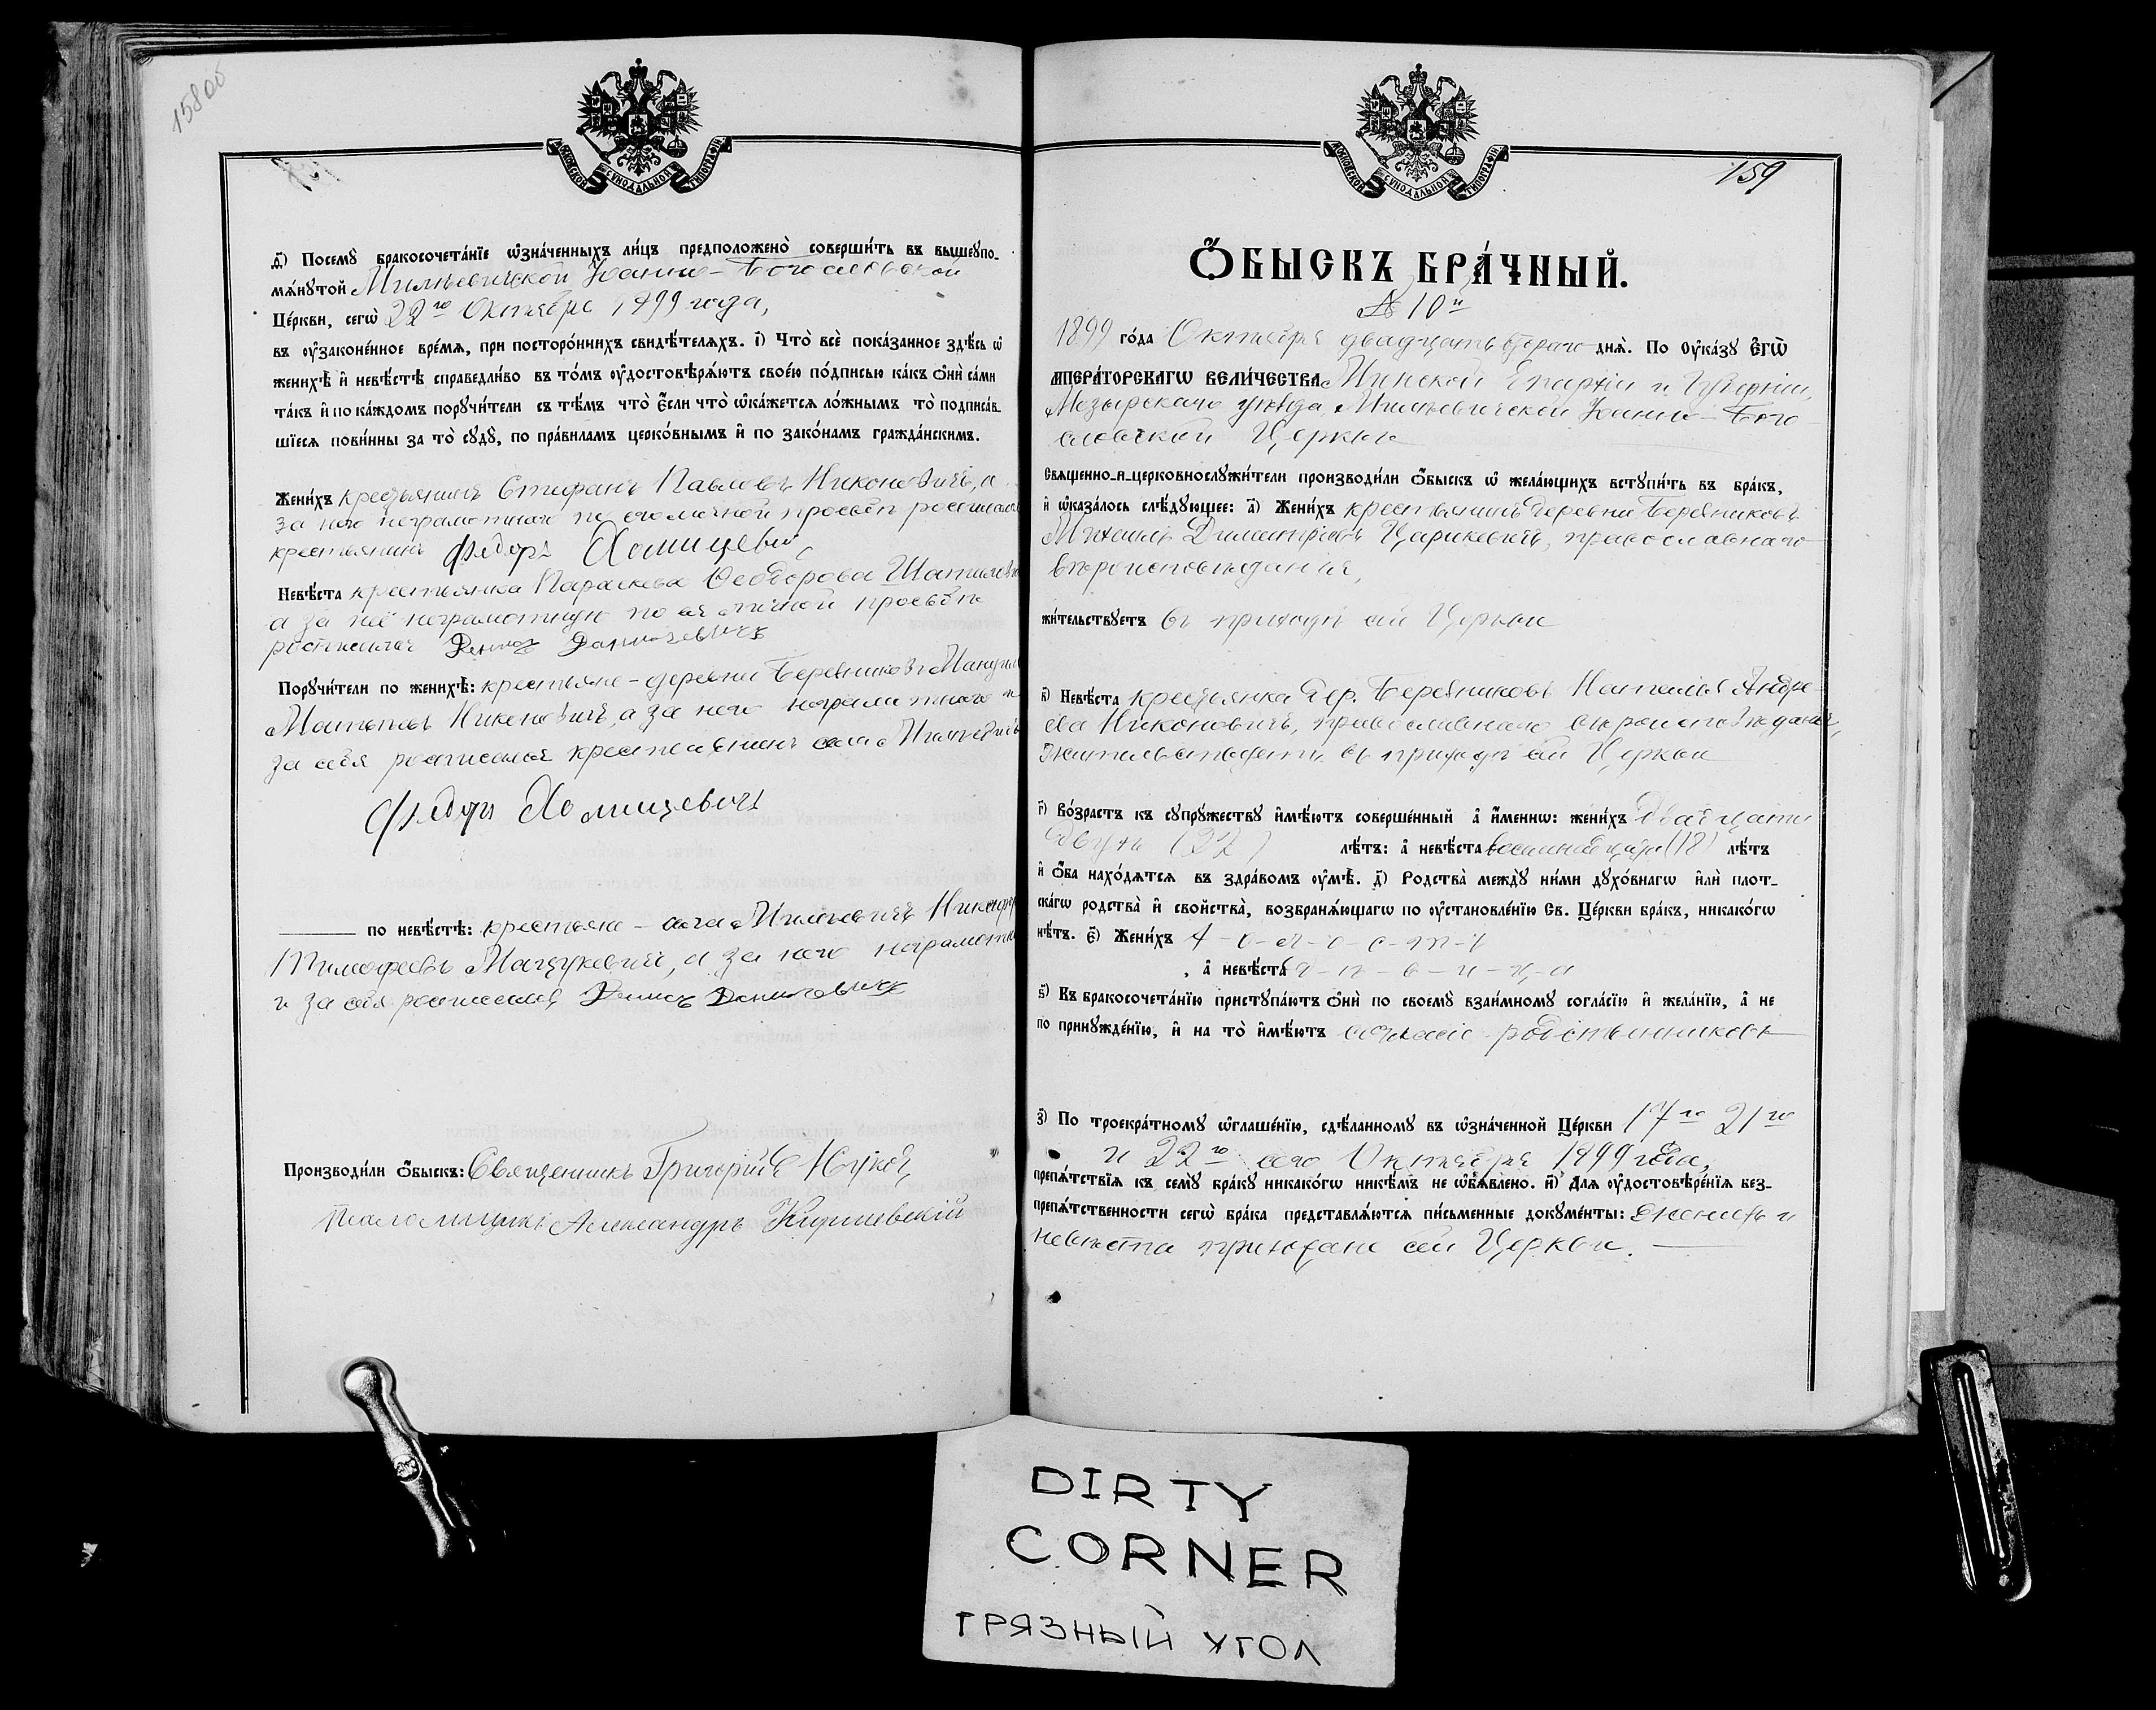 158об
МОСКОВСКОЙ СѴНОДАЛЬНОЙ ТИПОГРАФІИ
д҃) Посемꙋ бракосочета́нїе ѡ҆зна́ченныхъ ли́цъ предположено̀ соверши́ть въ вышеꙋпо-
мѧ́нꙋтой Милевичской Іоанно-Богословской
Це́ркви, сегѡ̀ 22го Октября 1899 года,
въ ᲂу҆законе́нное вре́мѧ, при посторо́ннихъ свидѣ́телѧхъ. і҃) Что̀ всѐ пока́занное здѣ́сь ѡ҆
женихѣ̀ и҆ невѣ́стѣ справедли́во въ то́мъ ᲂу҆достовѣрѧ́ютъ свое́ю по́дписью ка́къ ѻ҆нѝ са́ми
та́къ и҆ по ка́ждомъ порꙋчи́тели съ тѣ́мъ что̀ є҆́сли что̀ ѡ҆ка́жетсѧ ло́жнымъ то̀ подписа́в-
шїесѧ пови́нны за то̀ сꙋдꙋ̀, по пра́виламъ церко́внымъ и҆ по зако́намъ гражда́нскимъ.
Жени́хъ крестьянинъ Стефанъ Павловъ Никоновичъ, а
за него неграмотного по его личной просьбѣ росписался
крестьянинъ Федоръ Хомицевич
Невѣ́ста крестьянка Параскева Ѳеодорова
а за неё неграмотную по ея личной просьбѣ
росписался Денисъ Данилевичъ
Порꙋчи́тели по женихѣ̀: крестьяне - деревни Беревниковъ
Никоновичъ, а за него неграмотного и
за себя росписался крестьянинъ села
Федоръ Хомицевичъ
по невѣ́стѣ: крестьяне - села Милевичъ
Тимофеевъ, а за него
и за себя росписался Денисъ Данилевичъ
Производи́ли ѻ҆́быскъ: Священникъ Григорій
Псаломщикъ Александръ
МОСКОВСКОЙ СѴНОДАЛЬНОЙ ТИПОГРАФІИ
159
Ѻ҆́БЫСКЪ БРА́ЧНЫЙ.
№ 10й
1899 го́да Октября двадцать второго днѧ̀. По ᲂу҆ка́зꙋ Є҆гѡ̀
И҆МПЕРА́ТОРСКАГѠ ВЕЛИ́ЧЕСТВА Минской Епархіи и Губерніи,
Мозырскаго уѣзда, Милевичской Іоанно-Бого-
словской Церкви
Свѧщенно-и-церковнослꙋжи́тели производи́ли ѻ҆́быскъ ѡ҆ жела́ющихъ встꙋпи́ть въ бра́къ,
и҆ ѡ҆каза́лось слѣ́дꙋющее: а҃) Жени́хъ крестьянинъ деревни Беревниковъ
Михаилъ Димитріевъ Царикевичъ, православнаго
вѣроисповѣданія,
жи́тельствꙋетъ въ приходѣ сей Церкви
в҃) Невѣ́ста крестьянка дер. Беревниковъ Наталья Андре-
ева Никоновичъ, православнаго вѣроисповѣданія,
жительствуетъ въ приходѣ сей Церкви
г҃) Во́зрастъ къ сꙋпрꙋ́жествꙋ и҆мѣ́ютъ соверше́нный а҆ и҆́меннѡ: жени́хъ двадцати
двухъ (22) лѣ́тъ: а҆ невѣ́ста восемнадцати (18) лѣ́тъ
и҆ ѻ҆́ба нахо́дѧтсѧ въ здра́вомъ ᲂу҆мѣ̀. д҃) Родства̀ междꙋ̀ ни́ми дꙋхо́внагѡ и҆лѝ плот-
ска́гѡ родства̀ и҆ свойства̀, возбранѧ́ющагѡ по ᲂу҆становле́нїю Св. Це́ркви бра́къ, никако́гѡ
нѣ́тъ. є҃) Жени́хъ х-о-л-о-с-т-ъ
, а҆ невѣ́ста д-ѣ-в-и-ц-а
ѕ҃) Къ бракосочета́нїю пристꙋпа́ютъ ѻ҆нѝ по своемꙋ̀ взаи́мномꙋ согла́сїю и҆ жела́нїю, а҆ не
по принꙋжде́нїю, и҆ на то̀ и҆мѣ́ютъ согласіе родственниковъ
з҃) По троекра́тномꙋ ѡ҆глаше́нїю, сдѣ́ланномꙋ въ ѡ҆зна́ченной Це́ркви 17го 21го
и 22го сего Октября 1899 года,
препѧ́тствїѧ къ семꙋ̀ бра́кꙋ никако́гѡ никѣ́мъ не ѡ҆б̾ѧ́влено. и҃) Длѧ ᲂу҆достовѣре́нїѧ без-
препѧ́тственности сегѡ̀ бра́ка представлѧ́ютсѧ пи́сьменные докꙋме́нты: женихъ и
невѣста прихожане сей Церкви.
DIRTY
CORNER
ГРЯЗНЫЙ УГОЛ